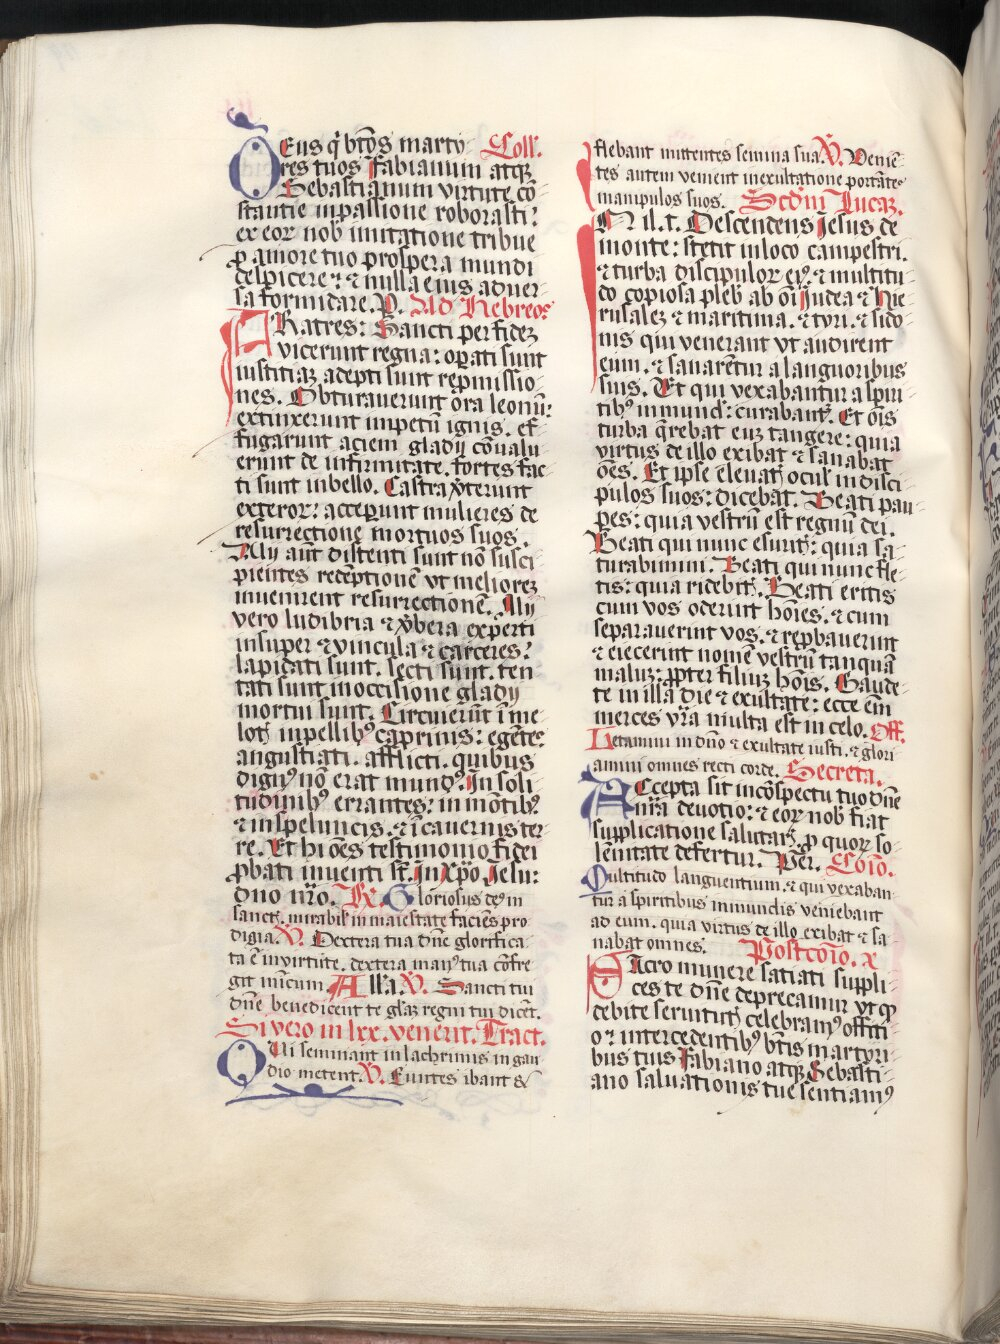 Deus q̃ btõs marty Coll'.
res tuos Fabianum atqꝫ
Sebastianum virtute cõ
stantie in passione roborasti:
ex eoꝝ nob̃ imitatione tribue
ꝓ amore tuo prospera mundi
despicere: ⁊ nulla eius aduer
sa formidare. P. Ad Hebreos
FRatres: Sancti per fidẽ
vicerunt regna: oꝑati sunt
iustitiaꝫ adepti sunt repmissio
nes. Obturauerunt ora leonũ:
extinxerunt impetũ ignis. ef
fugarunt aciem gladij cõualu
erunt de infirmitate. fortes fac
ti sunt in bello. Castra v̾terunt
exteroꝝ: acceꝑunt mulieres de
resurrectione mortuos suos.
Alij aũt distenti sunt nõ susci
pientes redẽptionẽ vt melioreꝫ
inuenirent resurrectionẽ. Alij
vero ludibria ⁊ v̾bera exꝑti
insuper ⁊ vincula ⁊ carceres:
lapidati sunt. secti sunt. ten
tati sunt in occisione gladij
mortui sunt. Circuierũt ĩ me
lotꝭ in pellibꝰ caprinis: egẽtes
angustiati. afflicti. quibus
dignꝰ nõ erat mundꝰ. In soli
tudinibꝰ errantes: in mõtibꝰ
⁊ in speluncis. ⁊ ĩ cauernis ter
re. Et hi oẽs testimonio fidei
ꝓbati inuenti st̃. In xp̃o Jesu:
dño nr̃o. R̸. Gloriosus deꝰ in
sanctꝭ. mirabil' in maiestate faciẽs pro
digia. V̸. Dextera tua dñe glorifica
ta ẽ in virtute. dextera manꝰ tua cõfre
git inicum. Alla. V̸. Sancti tui
dñe benedicent te gl'aꝫ regni tui dicẽt.
Si vero in lxx. venerit. Tract.
Qui seminant in lachrimis in gau
dio metent. V̸. Euntes ibant &
flebant mittentes semina sua. V̸. Veniẽ
tes autem venient in exultatione portãtes
manipulos suos. Scd̃m Lucaꝫ.
IN il. t. Descendens Jesus de
monte: stetit in loco campestri.
⁊ turba discipuloꝝ eiꝰ. ⁊ multitu
do copiosa pleb̃ ab oĩ Judea ⁊ Hie
rusaleꝫ ⁊ maritima. ⁊ tyri. ⁊ sido
nis qui venerant vt audirent
eum. ⁊ sanarẽtur a languoribus
suis. Et qui vexabantur a spiri
tibꝰ inmundꝭ: curabant̃. Et oĩs
turba q̃rebat euꝫ tangere: quia
virtus de illo exibat ⁊ sanabat
oẽs. Et ipse eleuatꝭ oculꝭ in disci
pulos suos: dicebat. Beati pau
pes: quia vestrũ est regnũ dei.
Beati qui nunc esuritꝭ: quia sa
turabimini. Beati qui nunc fle
tis: quia ridebitꝭ. Beati eritis
cum vos oderint hoĩes. ⁊ cum
separauerint vos. ⁊ reꝓbauerint
⁊ eiecerint nomẽ vestrũ tanquã
maluꝫ: ꝓpter filiuꝫ hoĩs. Gaude
te in illa die ⁊ exultate: ecce enĩ
merces vr̃a multa est in celo. Off.
Letamini in dño ⁊ exultate iusti. ⁊ glori
amini omnes recti corde. Secreta.
Accepta sit in cõspectu tuo dñe
nr̃a deuotio: ⁊ eoꝝ nob̃ fiat
supplicatione salutarꝭ. ꝓ quoꝝ so
lẽnitate defertur. Per. Cõio.
Multitudo languentium. ⁊ qui vexaban
tur a spiritibus inmundis veniebant
ad eum. quia virtus de illo exibat ⁊ sa
nabat omnes. Postcõio. x
SAcro munere satiati suppli
ces te dñe deprecamur vt qđ
debite seruitutꝭ celebramꝰ offiti
o: ⁊ intercedentibꝰ btĩs martyri
bus tuis Fabiano atqꝫ Sebasti
ano saluationis tue sentiamꝰ